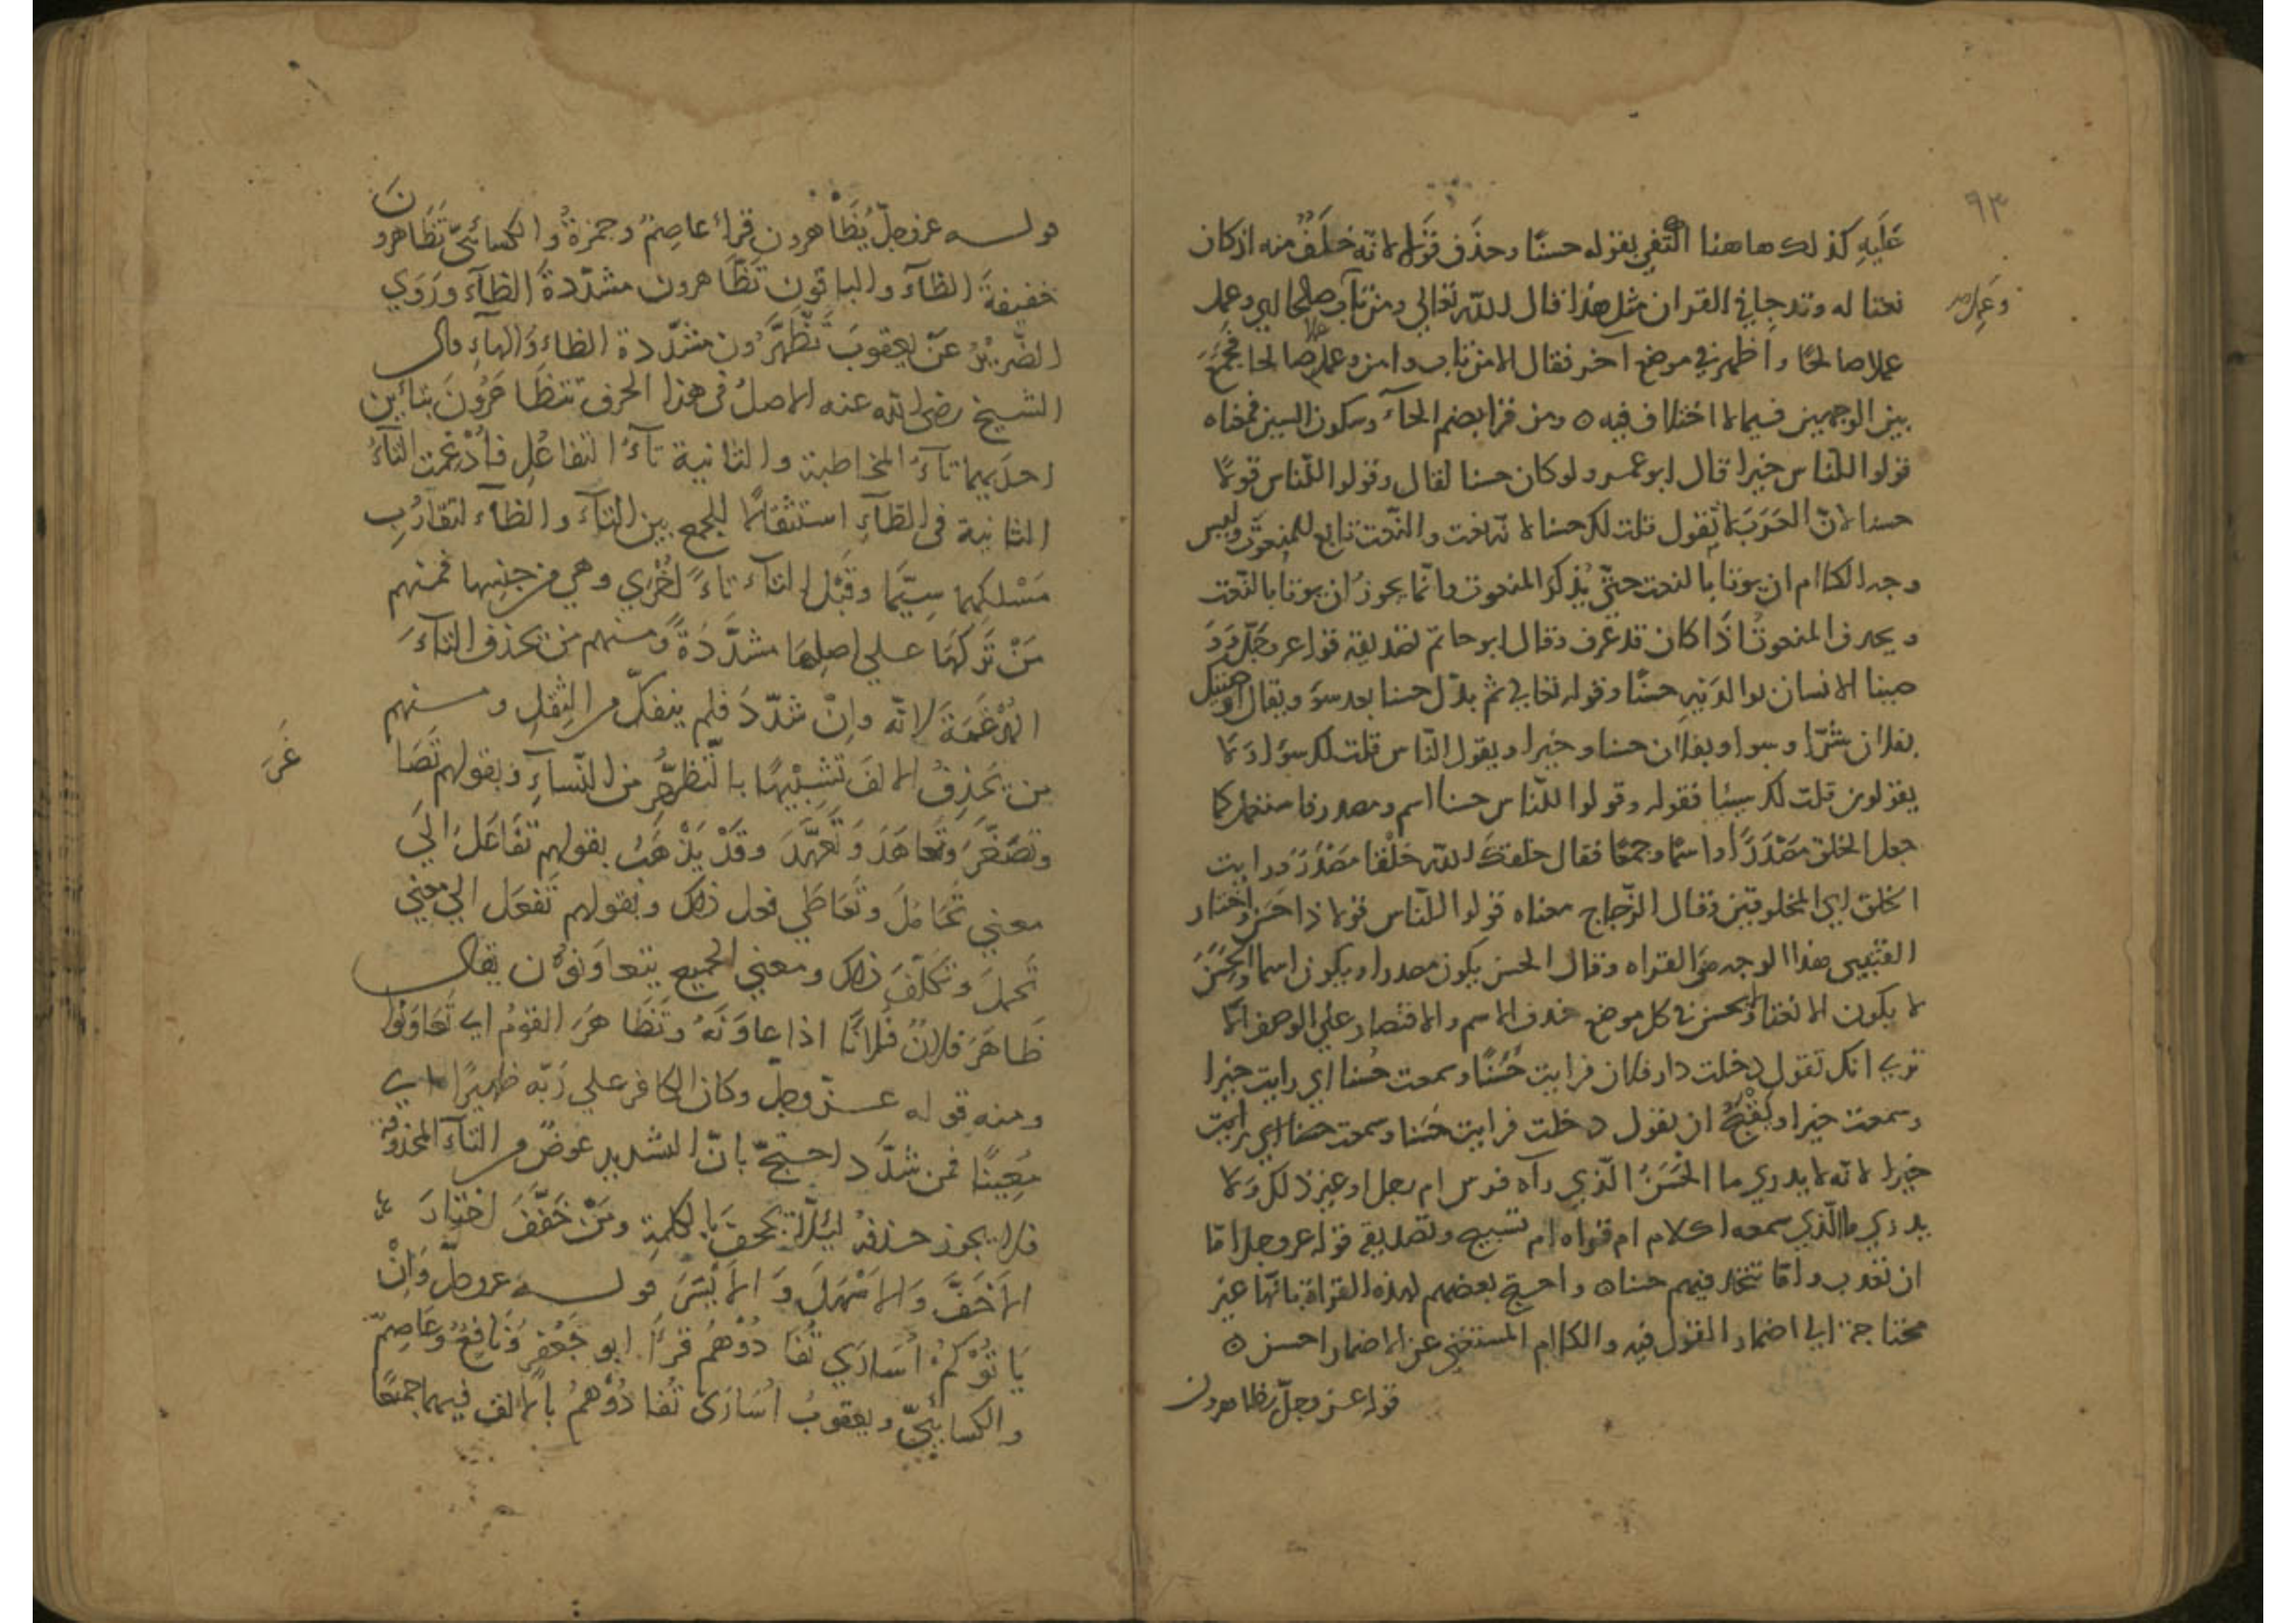 ٩٣
عَلَيهِ كذلك هاهنا اكتفي بقوله حسنًا وحذف قولا لانه خَلَفٌ منه اذ كان
نعتا له وقد جا في القران مثل هذا قال الله تعالى ومن تاب وعمل
وعمل صالحا
عملا صالحًا واظهر في موضع آخر فقال الا من تاب وامن وعمل عملا صالحا فجَمَعَ
بين الوجهين فيما لا اختلاف فيه ه ومن قرا بضم الحآء وسكون السين فمعناه
قولوا للناس خيرا قال ابو عمرو لو كان حسنا لقال وقولوا للناس قولًا
حسنا لانّ العَرَبَ لا تقول قلت لك حسنا لا نه نعت والنعت تابع للمنعوت وليس
وجه الكلام ان يوتا بالنعت حتّى يُذكَرَ المنعوت وانّما يجوز ان يوتا بالنّعت
ويحذف المنعوتُ اذَا كان قد عُرِف وقال ابو حاتم تصديقه قوله عز وجَلّ وَوَ
صينا الانسان بوالدَيهِ حسنًا وقوله تعالى ثم بدّل حسنا بعد سوء ويقال اوصيك
بفلان شرّا وسوا وبفلان حسنا وخيرا ويقول النّاس قلت لك سوًا ولا
يقولون قلت لك سيئا فقوله وقولوا للنّاس حسنا اسم ومصدر كما
جعل الخلق مَصْدَرًا واسمًا وجمعًا فقال خلقك الله خلْقا مَصْدَرٌ ورايت
الخلق اي المخلوقين وقال الزّجاج معناه قولوا للنّاس قولا ذا حسن واختار
القتيبي هذا الوجه من القراه وقال الحسن يكون مصدرا ويكون اسما والحَسَنُ
لا يكون الا نعتا ولا يحسن في كل موضع حذف الاسم والاقتصار علي الوصف الا
تري انك تقول دخلت دار فلان فرايت حُسْنًا وسمعت حُسنا اي رايت خيرا
وسمعت خيرا ويَقْبُحُ ان تقول دخلت فرايت حَسَنا وسمعت حسنا اي رايت
خيرا لانّه لا يدري ما الحَسَنُ الّذي رآه فرس ام رجل او غير ذلك ولا
يدري ما الّذي سمعه اكلام ام قراه ام تسبيح وتصديقه قوله عز وجل امّا
ان تعذب وامّا تتخذ فيهم حسنا ه واحتج بعضهم لهذه القراة بانّها غير
محتاجة الي اضمار القول فيه والكلام المستغني عن الاضمار احسن ه
قوله عز وجلّ تظاهرون
قولـــه عز وجلّ تَظَاهرون قرأ عاصِمٌ وحمزةُ والكسائيُّ تَظَاهرونَ
خفيفةَ الظآء والباقون تَظّاهرون مشدّدةَ الظآء ورَوَي
الضّريْرُ عنْ يعقوبَ تَظَّهَّرُون مشدّدة الظاء والهآءِ قال
الشيخ رضي الله عنه الاصلُ في هذا الحرف تتظَاهَرُونَ بتائين
احدَيهما تآءُ المخاطبة والثانية تآءُ التفاعُلِ فأُدْغمت التآءُ
الثانية في الظآءِ استثقالًا للجمع بين التآء والظآء لتقارُبِ
مَسْلَكِهِما سِيَّمَا وقَبْل التآء تآءً اُخْرَي وهي من جنسها فمنهم
مَنْ تَركَهَا علي اصلِهَا مشدَّدةً ومنهم من يحذف التآءَ
المُدْغَمَةَ لانّه وإنْ شدّدَ فلم ينفكّ من الثِقَلِ ومنهم
من يَحذِفُ الالفَ تَشبيهًا بالتّظهّر من النّسآءِ وبقولهم تَصَا
غَرَ
وتَصَغَّرَ وتعاهَدَ وَتَعَهَّدَ وقَدْ يَذْهَبُ بقولهم تَفَاعَلَ الَي
معني تحَامَلَ وتَعَاطَي فعل ذلك وبقولهم تَفعَل الي معني
تَحمّلَ وتَكَلَّفَ ذلك ومعني الجميع يتعاوَنُون يقال
ظَاهَرَ فلانٌ فُلانًا اذا عاوَنَهُ وتَظَاهَرَ القومُ اي تَعَاوَنُوا
ومنه قوله عـــز وجلّ وكان الكافر علي رَبّه ظهيرًا اي
مُعِينًا فمن شدَّد احتجّ بانّ التشديد عوضٌ من التآءِ المحذوفة
فلا يجوز حذفه لِئلّا تجحفَ بالكلمةِ ومَنْ خَفَّفَ اختارَ
الاَخَفَّ وَالاَسْهَلَ وَالاَيْسَرَ قولـــه عز وجلّ وَاِنْ
يَأتُوكُمْ اُسَارَي تُفَادُوْهُمْ قرَأَ ابو جَعْفرٍ وَنافِعٌ وَعَاصِمٌ
والكسائيّ ويعقوبُ اُسَارَى تُفَادُوْهُمْ بالالف فيهما جميعًا